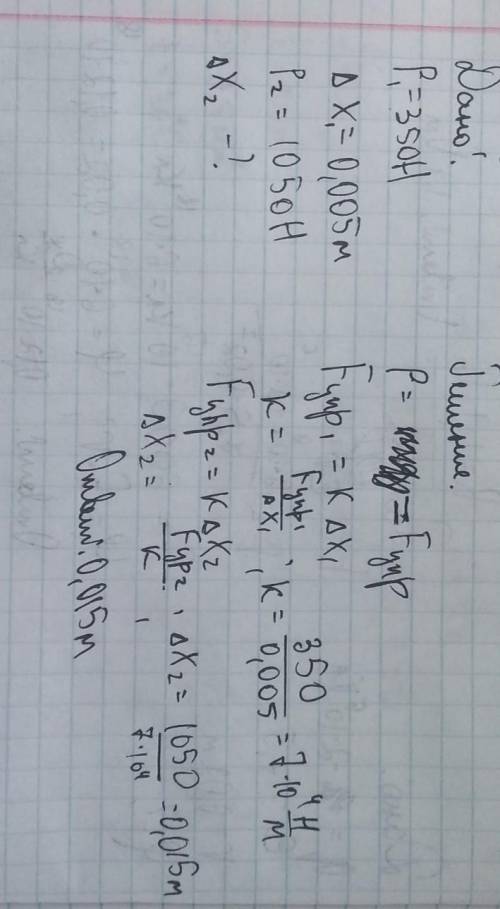 Дано:
P₁ = 350Н
Δ X₁ = 0,005м
P₂ = 1050Н
Δ X₂ - ?
Решение.
P = = Fупр
Fупр₁ = K ΔX₁
K = Fупр₁/ΔX₁ ; K = 350/0,005 = 7·10⁴ Н/м
Fупр₂ = K ΔX₂
ΔX₂ = Fупр₂/K , ΔX₂ = 1050/7·10⁴ = 0,015м
Ответ: 0,015м